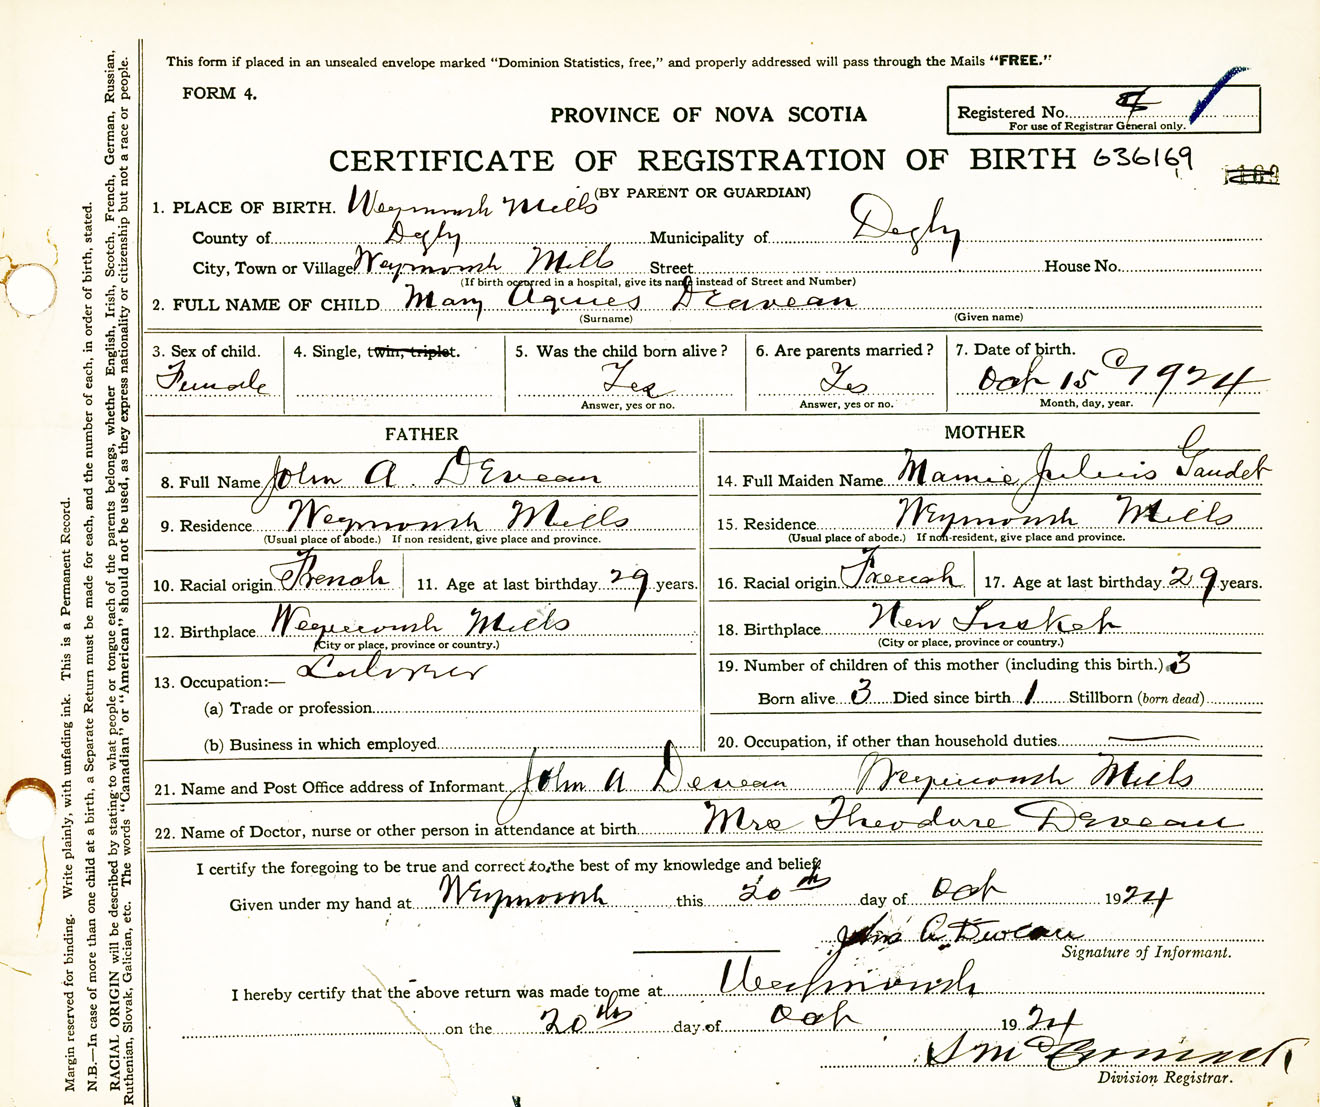 This form if placed in an unsealed envelope marked "Dominion Statistics, free," and properly addressed will pass through the Mails "FREE."
FORM 4.
PROVINCE OF NOVA SCOTIA
Registered No.
For use of Registrar General only.
CERTIFICATE OF REGISTRATION OF BIRTH 636169
(BY PARENT OR GUARDIAN)
1. PLACE OF BIRTH. Weymouth Mills
County of Digby Municipality of Digby
City, Town or Village Weymouth Mills Street House No.
(If birth occurred in a hospital, give its name instead of Street and Number)
2. FULL NAME OF CHILD Mary Agnes Deveau
(Surname) (Given name)
3. Sex of child. Female
4. Single, twin, triplet.
5. Was the child born alive? Yes
Answer, yes or no.
6. Are parents married? Yes
Answer, yes or no.
7. Date of birth. Oct 15 1924
Month, day, year.
FATHER
8. Full Name John A. Deveau
9. Residence Weymouth Mills
(Usual place of abode.) If non resident, give place and province.
10. Racial origin French 11. Age at last birthday 29 years.
12. Birthplace Weymouth Mills
(City or place, province or country.)
13. Occupation:— Laborer
(a) Trade or profession
(b) Business in which employed
MOTHER
14. Full Maiden Name Mamie Gaudet
15. Residence Weymouth Mills
(Usual place of abode.) If non-resident, give place and province.
16. Racial origin French 17. Age at last birthday 29 years.
18. Birthplace New Tusket
(City or place, province or country.)
19. Number of children of this mother (including this birth.) 3
Born alive 3 Died since birth 1 Stillborn (born dead)
20. Occupation, if other than household duties
21. Name and Post Office address of Informant John A Deveau Weymouth Mills
22. Name of Doctor, nurse or other person in attendance at birth Mrs Theodore Deveau
I certify the foregoing to be true and correct to the best of my knowledge and belief
Given under my hand at Weymouth this 20th day of Oct 1924
John A Deveau
Signature of Informant.
I hereby certify that the above return was made to me at Weymouth
on the 20th day of Oct 1924
S McCormack
Division Registrar.
Margin reserved for binding. Write plainly, with unfading ink. This is a Permanent Record.
N.B.—In case of more than one child at a birth, a Separate Return must be made for each, and the number of each, in order of birth, stated.
RACIAL ORIGIN will be described by stating to what people or tongue each of the parents belongs, whether English, Irish, Scotch, French, German, Russian,
Ruthenian, Slovak, Galician, etc. The words "Canadian" or "American" should not be used, as they express nationality or citizenship but not a race or people.